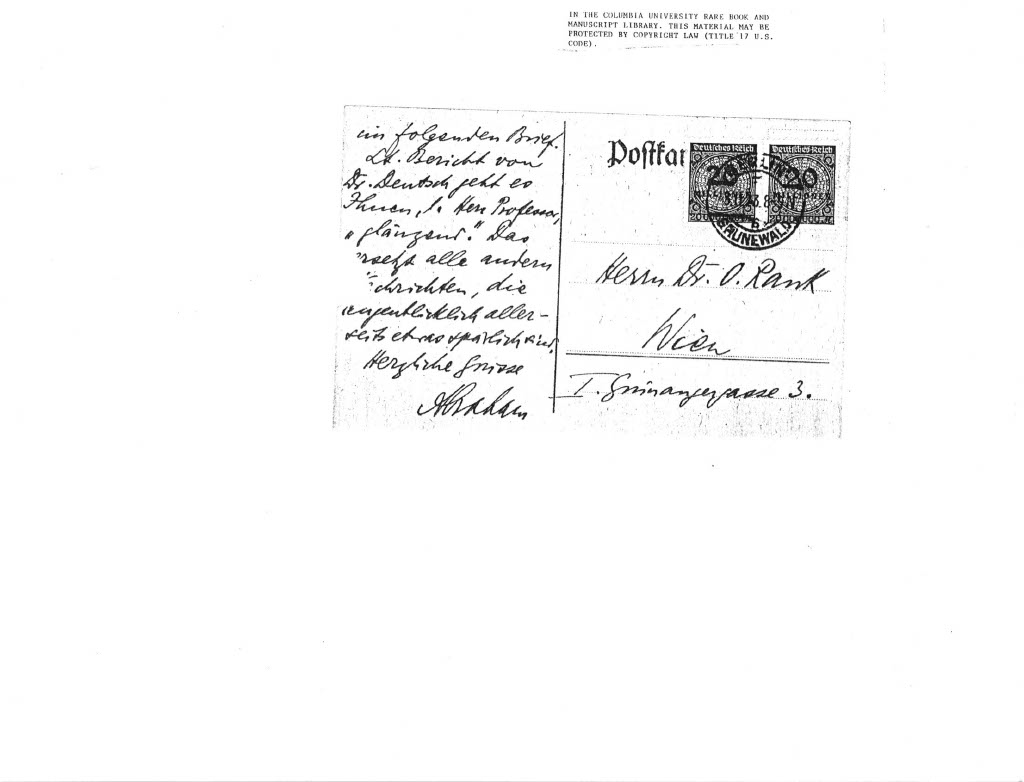 IN THE COLUMBIA UNIVERSITY RARE BOOK AND
MANUSCRIPT LIBRARY. THIS MATERIAL MAY BE
PROTECTED BY COPYRIGHT LAW (TITLE 17 U.S.
CODE).
im folgenden Brief.
Lt. Bericht von
Dr. Deutsch geht es
Ihnen, l. Herr Professor,
„glänzend“. Das
rsetzt alle andern
chrichten, die
augenblicklich aller-
seits etwas spärlich sind.
Herzliche Grüsse
Abraham
Postkar
Deutsches Reich
Deutsches Reich
20
20
BERLIN
GRUNEWALD
Herrn Dr. O. Rank
Wien
I. Grünangergasse 3.